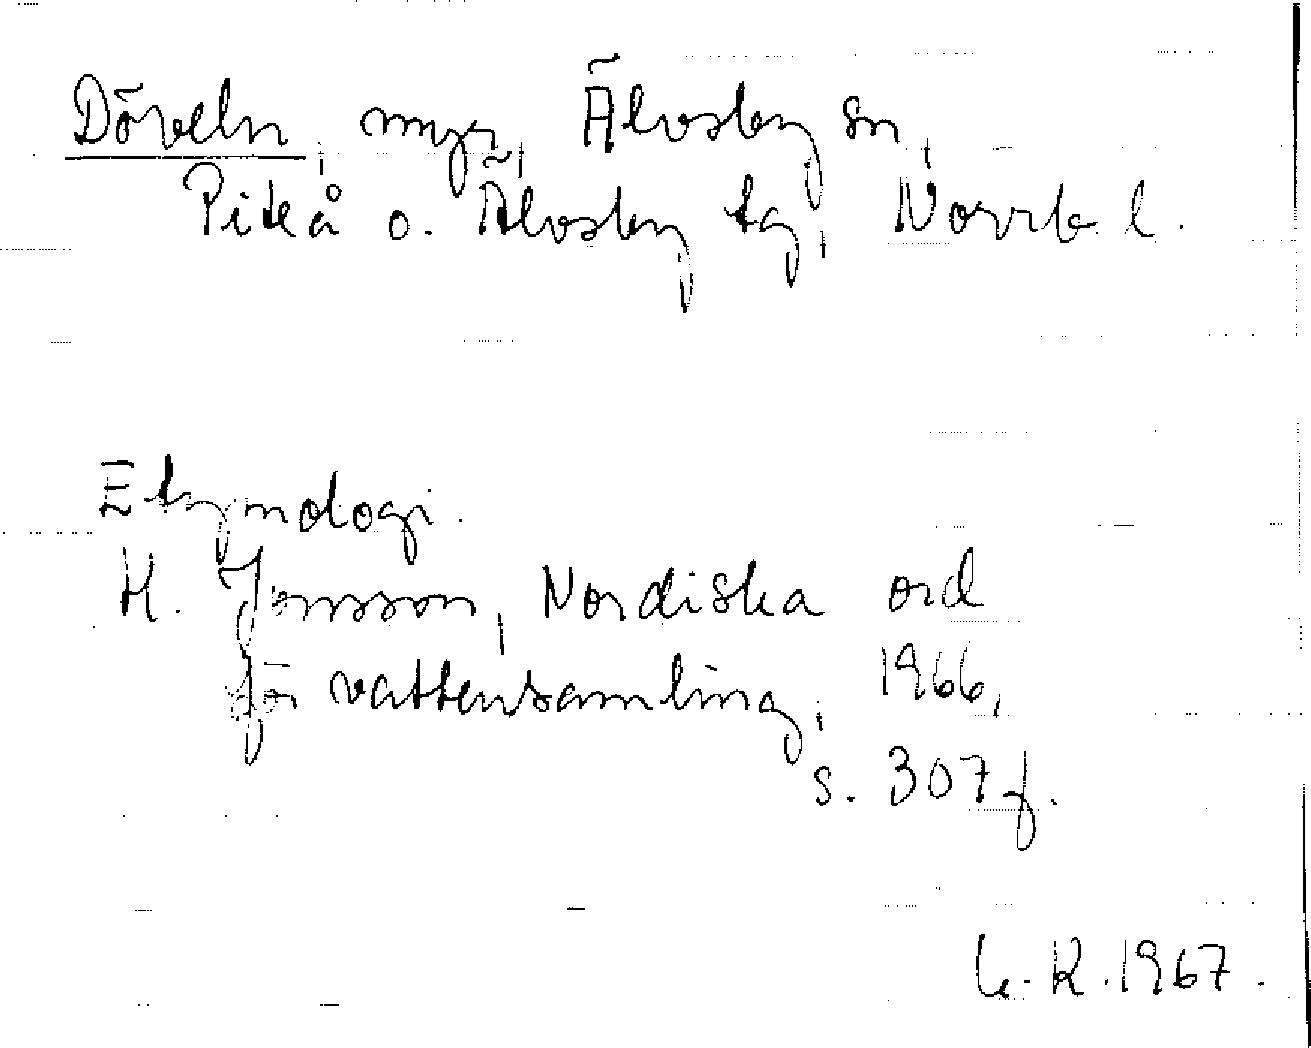 Döveln, myr, Älvsby sn,
Piteå o. Älvsby tg, Norrb. l.
Etymologi.
H. Jonsson, Nordiska ord
för vattensamling, 1966,
s. 307 f.
K. 1967.